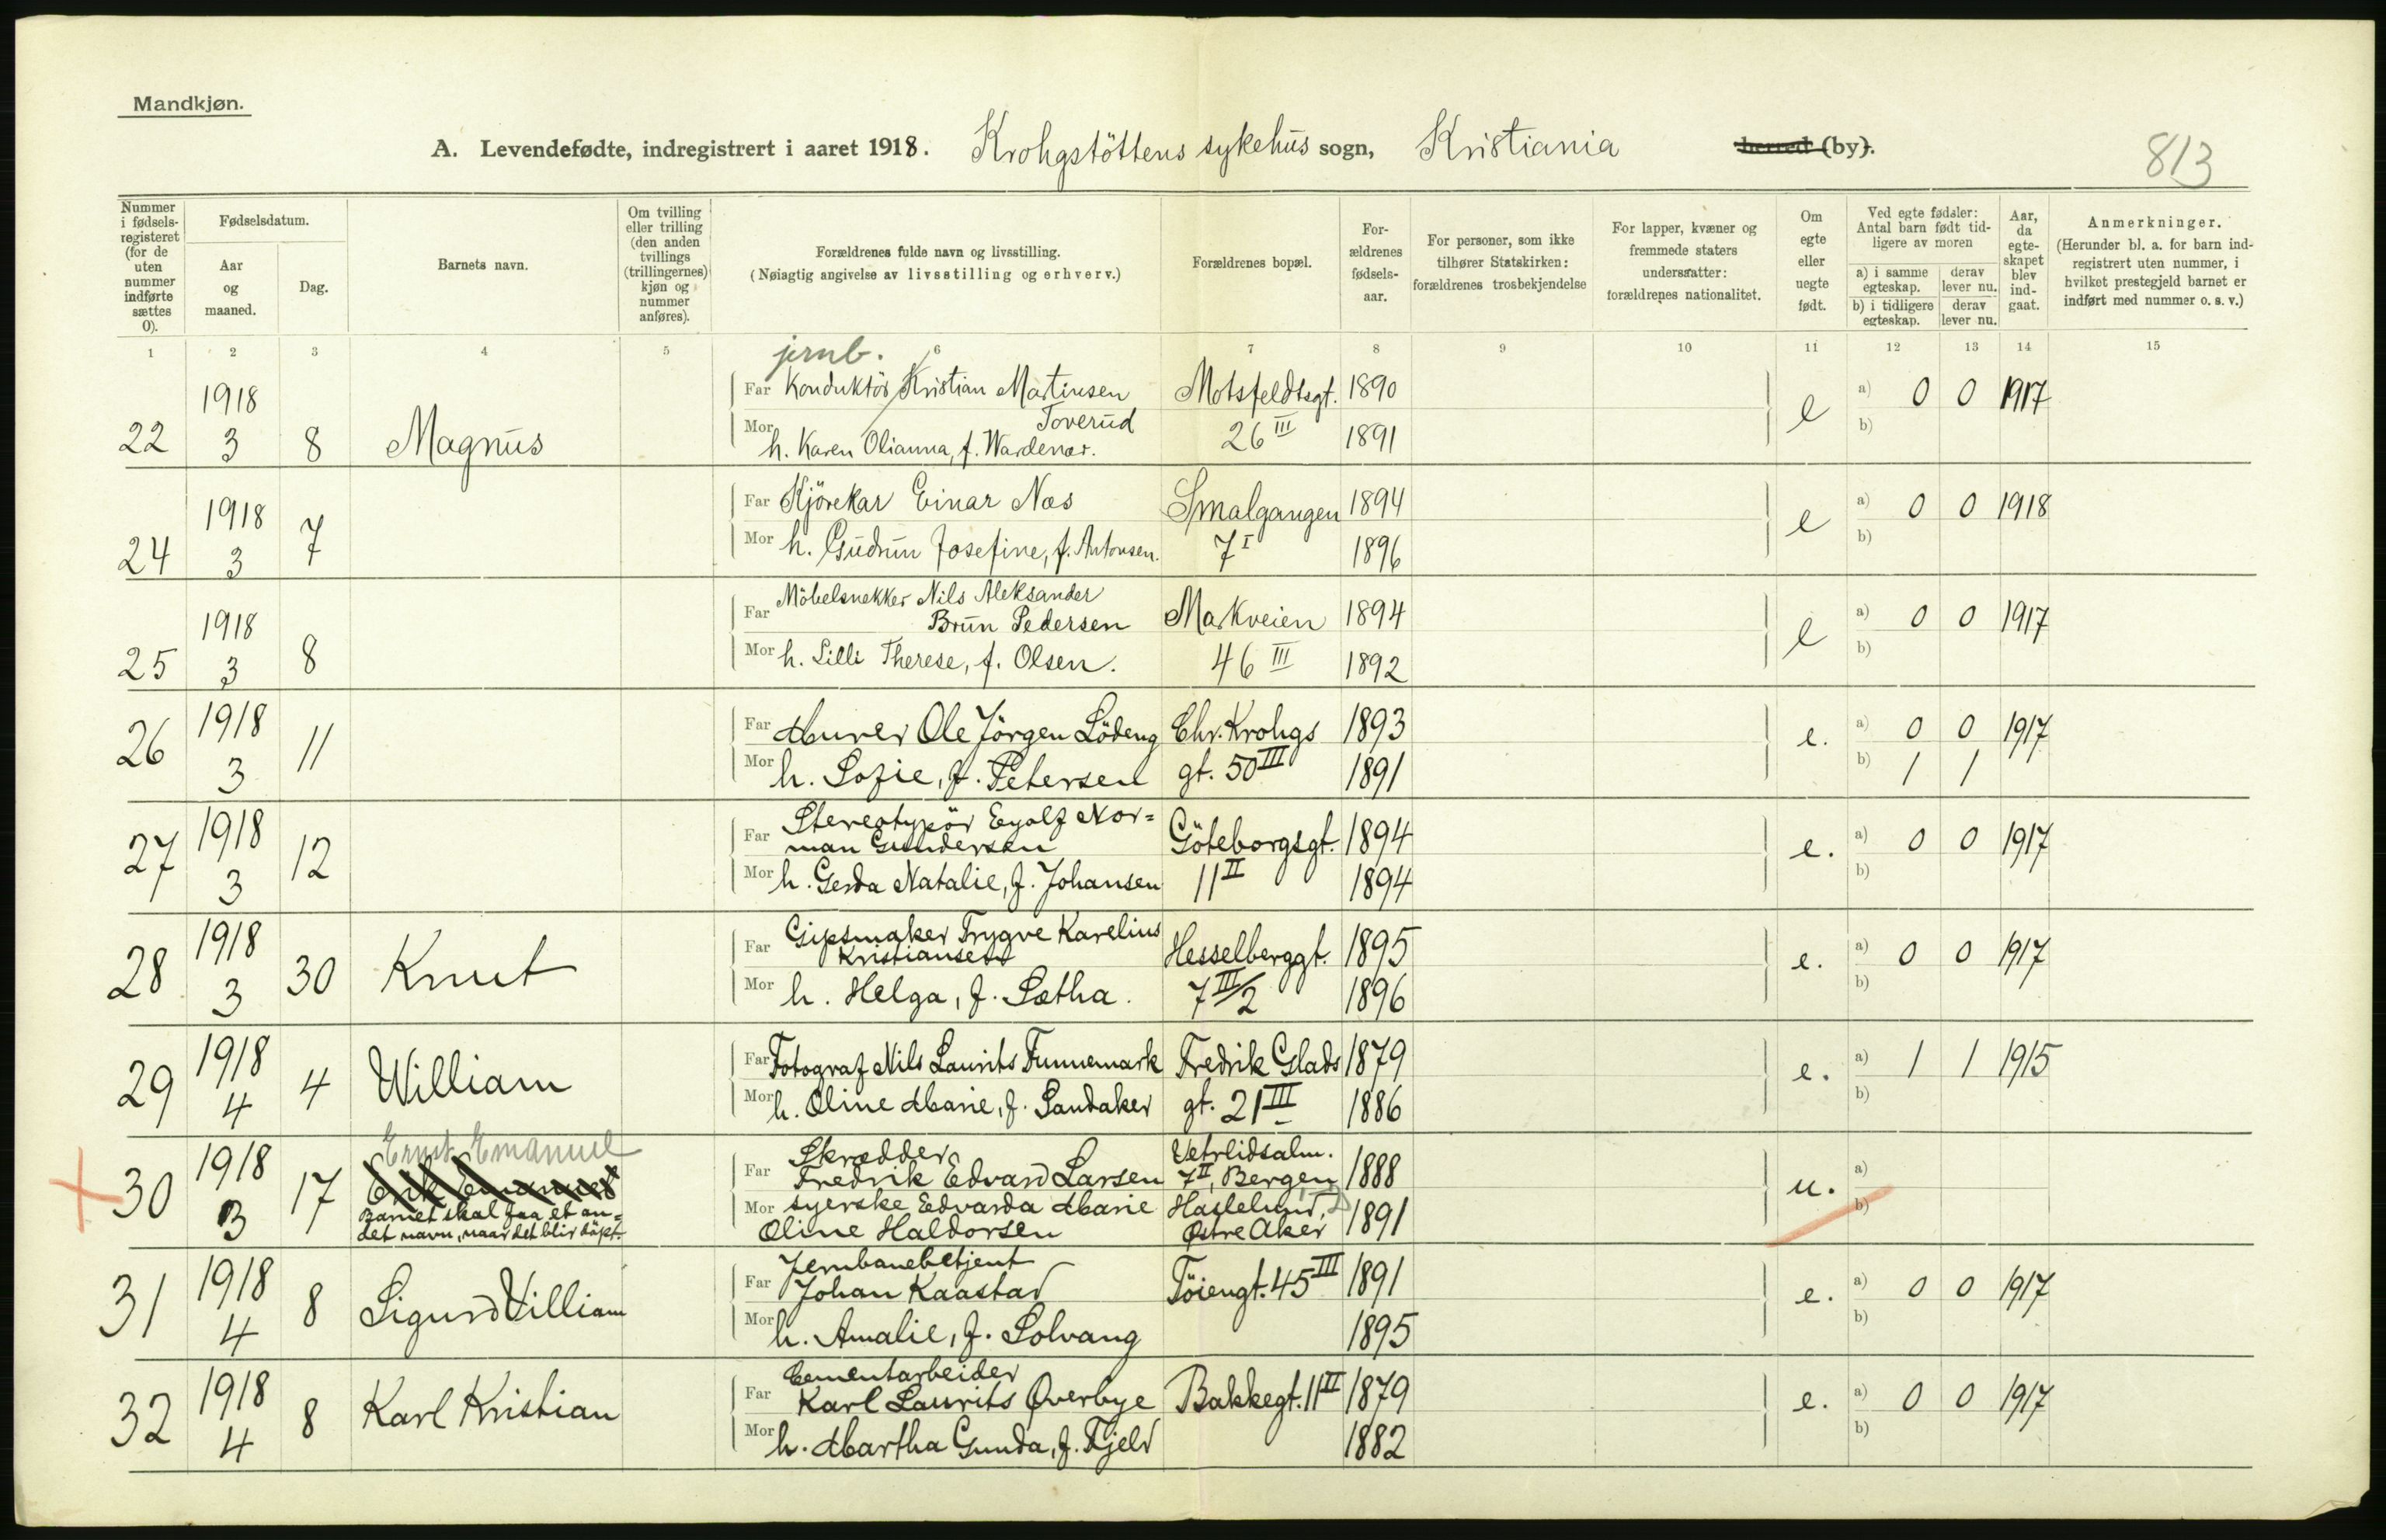 Mandkjøn.
A. Levendefødte, indregistrert i aaret 1918. Krohgstöttens sykehus sogn, Kristiania herred (by).
813
Nummer i fødsels-registeret (for de uten nummer indførte sættes 0).
Fødselsdatum.
Aar og maaned.
Dag.
Barnets navn.
Om tvilling eller trilling (den anden tvillings (trillingernes) kjøn og nummer anføres).
Forældrenes fulde navn og livsstilling.
(Nøiagtig angivelse av livsstilling og erhverv.)
Forældrenes bopæl.
For-ældrenes fødsels-aar.
For personer, som ikke tilhører Statskirken: forældrenes trosbekjendelse
For lapper, kvæner og fremmede staters undersaatter: forældrenes nationalitet.
Om egte eller uegte født.
Ved egte fødsler: Antal barn født tid-ligere av moren
a) i samme egteskap.
derav lever nu.
b) i tidligere egteskap.
derav lever nu.
Aar, da egte-skapet blev ind-gaat.
Anmerkninger.
(Herunder bl. a. for barn ind-registrert uten nummer, i hvilket prestegjeld barnet er indført med nummer o. s. v.)
1 2 3 4 5 6 7 8 9 10 11 12 13 14 15
jernb.
Far Konduktör Kristian Martinsen Motsfeldtsgt. 1890
1918 e a) 0 0 1917
Toverud
22 3 8 Magnus Mor h. Karen Olianna, f. Wardenær. 26 III 1891 b)
Far Kjörekar Einar Næs Smalgangen 1894
1918 7 e a) 0 0 1918
24 3 Mor h. Gudrun Josefine, f. Antonsen. 7 I 1896 b)
Möbelsnekker Nils Aleksander
1918 Far Brun Pedersen Markveien 1894 e a) 0 0 1917
25 3 8 Mor h. Lilli Therese, f. Olsen. 46 III 1892 b)
26 1918 11 Far Murer Ole Jörgen Södeng Chr. Krohgs 1893 e. a) 0 0 1917
3 Mor h. Sofie, f. Petersen gt. 50 III 1891 b) 1 1
Stereotypör Eyolf Nor=
27 1918 12 Far man Gundersen Göteborgsgt. 1894 e. a) 0 0 1917
3 Mor h. Gerda Natalie, f. Johansen 11 II 1894 b)
Gipsmaker Trygve Karelius
28 1918 30 Knut Far Kristiansen Hesselberggt. 1895 e. a) 0 0 1917
3 Mor h. Helga, f. Sætha. 7 III/2 1896 b)
29 1918 4 William Far Fotograf Nils Laurits Funnemark Fredrik Glads 1879 e. a) 1 1 1915
4 Mor h. Oline Marie, f. Sandaker gt. 21 III 1886 b)
Ernst Emanuel
Skrædder Vetrlidsalm.
30 1918 17 Erik Emanuel Far Fredrik Edvard Larsen 7 II, Bergen 1888 u. a)
3 Barnet skal faa et an= Mor syerske Edvarda Marie Haslelund, 1891 b)
det navn, naar det blir döpt. Oline Haldorsen Østre Aker
Jernbanebetjent
31 1918 8 Sigurd William Far Johan Kaastad Töiengt. 45 III 1891 e. a) 0 0 1917
4 Mor h. Amalie, f. Solvang 1895 b)
Cementarbeider
32 1918 8 Karl Kristian Far Karl Laurits Øverbye Bakkegt. 11 II 1879 e. a) 0 0 1917
4 Mor h. Martha Gunda, f. Fjeld 1882 b)